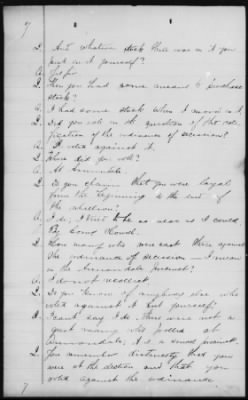 7
Q. And whatever stock there was on it you
put on it yourself?
A. Yes sir.
Q. Then you had some means to purchase
stock?
A. I had some stock when I moved on it
Q. Did you vote on the question of the rat-
ification of the ordinance of secession?
A. I voted against it.
Q. Where did you vote?
A. At Annandale.
Q. Do you claim that you were loyal
from the beginning to the end of
the rebellion?
A. I do, I tried to be as near as I could
Q. How many votes were cast there against
the ordinance of secession — I mean
in the Annandale precinct?
A. I do not recollect.
Q. Do you know of neighbors else who
voted against it but yourself?
A. I can't say I do. There were not a
great many who polled at
Annandale, it is a small precinct.
Q. You remember distinctly that you
were at the election and that you
voted against the ordinance.
7